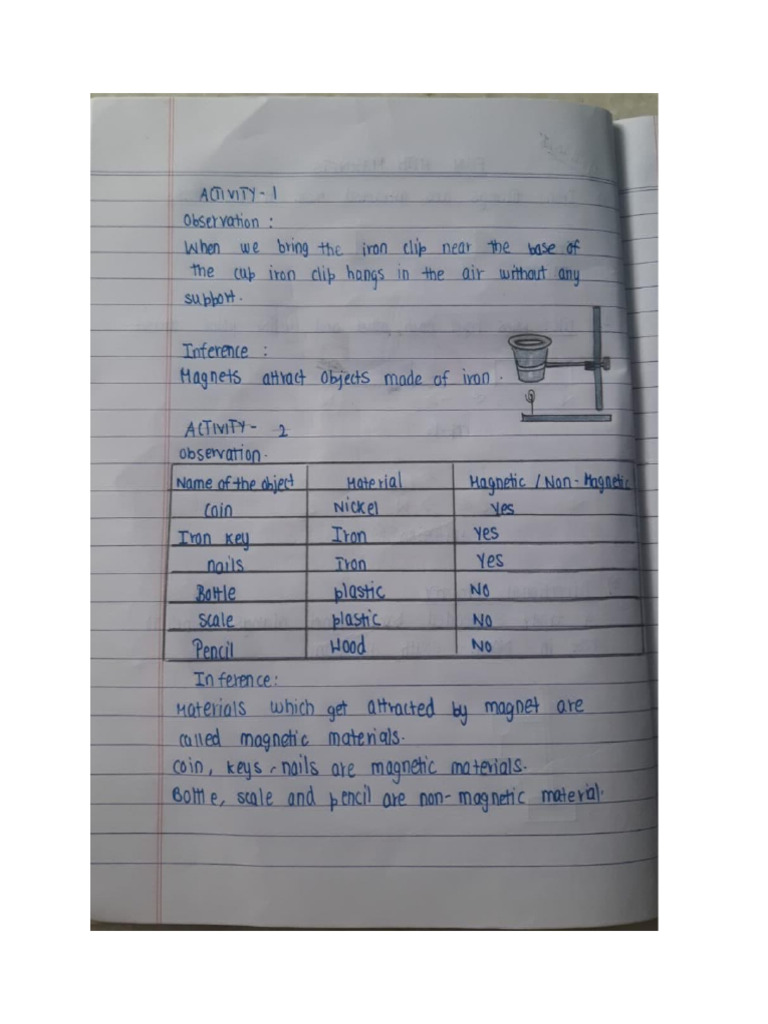 ACTIVITY - 1
Observation :
When we bring the iron clip near the base of
the cup iron clip hangs in the air without any
support.
Inference :
Magnets attract objects made of iron.
ACTIVITY - 2
Observation.
Name of the object Material Magnetic / Non-Magnetic
Coin Nickel Yes
Iron Key Iron Yes
nails Iron Yes
Bottle plastic No
scale plastic No
Pencil Wood No
Inference:
Materials which get attracted by magnet are
called magnetic materials.
Coin, Keys, nails are magnetic materials.
Bottle, scale and pencil are non-magnetic material.